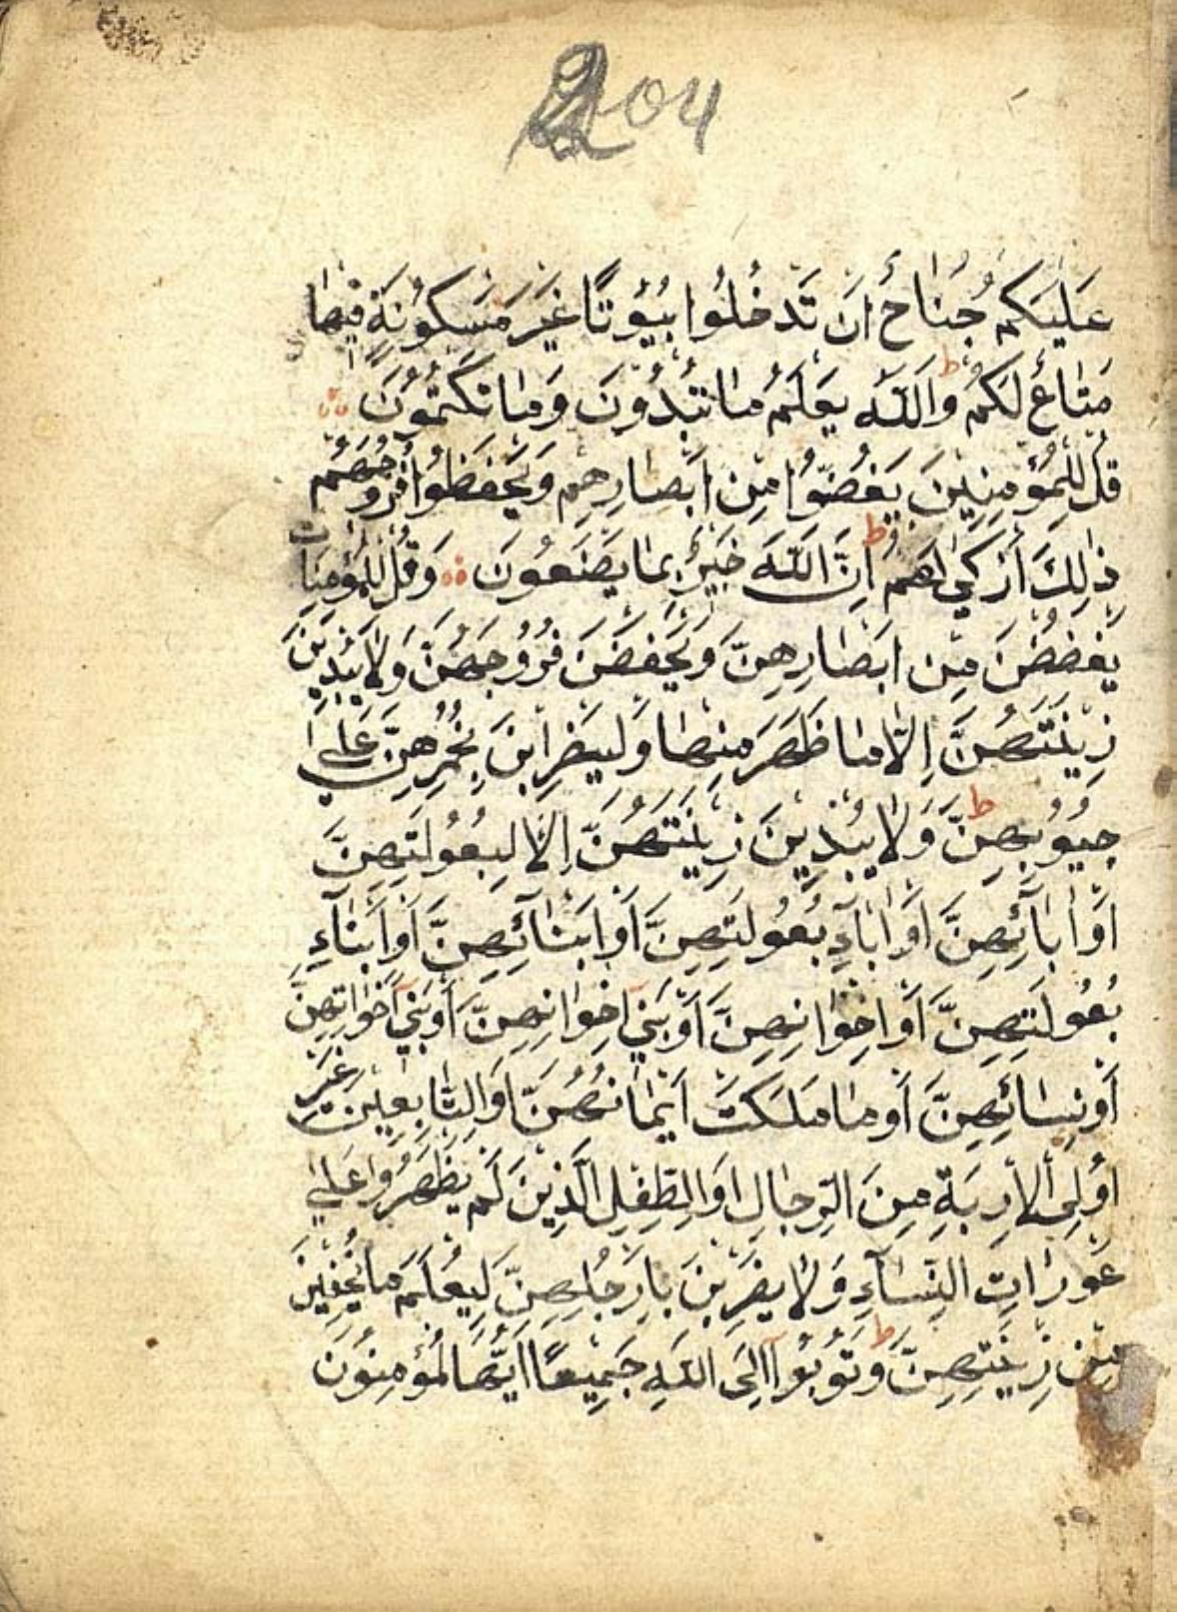 204
عَلَيكُم جُنَاحٌ اَن تَدخُلُوا بُيُوتًا غَيرَ مَسكُونَةٍ فِيهَا
مَتَاعٌ لَكُم ط وَاللّٰهُ يَعلَمُ مَا تُبدُونَ وَمَا تَكتُمُونَ
قُل لِلمُؤمِنِينَ يَغُضُّوا مِن اَبصَارِهِم وَيَحفَظُوا فُرُوجَهُم
ذٰلِكَ أَزكٰى لَهُم ط اِنَّ اللّٰهَ خَبِيرٌ بِمَا يَصنَعُونَ وَقُل لِلمُؤمِنَاتِ
يَغضُضنَ مِن ابصَارِهِنَّ وَيَحفَضنَ فُرُوجَهُنَّ وَلَا يُبدِينَ
زِينَتَهُنَّ اِلَّا مَا ظَهَرَ مِنهَا وَليَضرِبنَ بِخُمُرِهِنَّ عَلٰى
جُيُوبِهِنَّ ط وَلَا يُبدِينَ زِينَتَهُنَّ اِلَّا لِبُعُولَتِهِنَّ
اَو اٰبَآئِهِنَّ اَو اٰبَآءِ بُعُولَتِهِنَّ اَو ابنَآئِهِنَّ اَو اَبنَآءِ
بُعُولَتِهِنَّ اَو اِخوَانِهِنَّ اَو بَنِي اِخوَانِهِنَّ اَو بَنِي اَخَوَاتِهِنَّ
أَو نِسَائِهِنَّ أَو مَا مَلَكَت اَيمَانُهُنَّ اَوِ التَّابِعِينَ غَيرِ
اُولِى الاِربَةِ مِنَ الرِّجَالِ اَوِ الطِّفلِ الَّذِينَ لَم يَظهَرُوا عَلٰى
عَورَاتِ النِّسَآءِ وَلَا يَضرِبنَ بِاَرجُلِهِنَّ لِيُعلَمَ مَا يُخفِينَ
مِن زِينَتِهِنَّ ط وَتُوبُوآ اِلَى اللّٰهِ جَمِيعًا اَيُّهَا لمُؤمِنُونَ